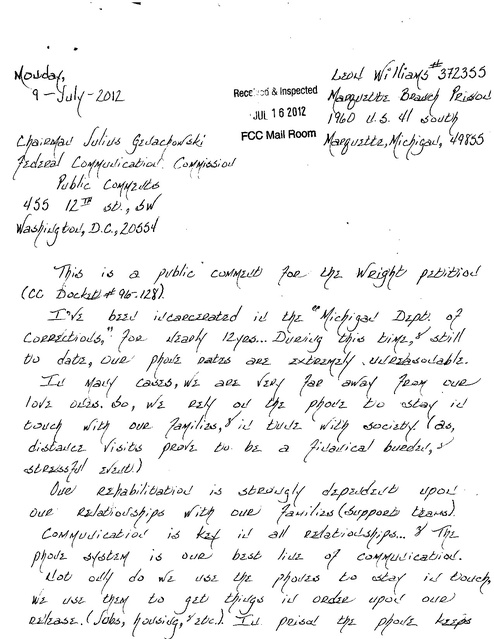 Monday,
9-July-2012
Received & Inspected
JUL 16 2012
FCC Mail Room
Leon Williams #372355
Marquette Branch Prison
1960 U.S. 41 South
Marquette, Michigan, 49855
Chairman Julius Genachowski
Federal Communication Commission
Public Comments
455 12TH St., SW
Washington, D.C., 20554
This is a public comment for the Wright petition
(CC Docket # 96-128).
I've been incarcerated in the "Michigan Dept. of
Corrections," for nearly 12yrs... During this time, & still
to date, our phone rates are extremely unreasonable.
In many cases, we are very far away from our
love ones. So, we rely on the phone to stay in
touch with our families, & in tune with society. (as,
distance visits prove to be a financial burden, &
stressful event.)
Our rehabilitation is strongly dependent upon
our relationships with our families (support teams).
Communication is key in all relationships... & The
phone system is our best line of communication.
Not only do we use the phones to stay in touch,
we use them to get things in order upon our
release. (Jobs, housing, & etc.). In prison the phone keeps